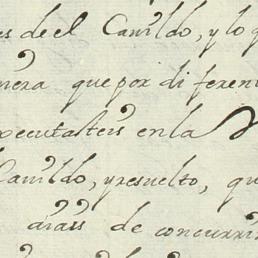 es de el Cavildo, y lo q
nera que por di feren
xecutasteis en la
Cavildo, y resuelto, qu
de concurri